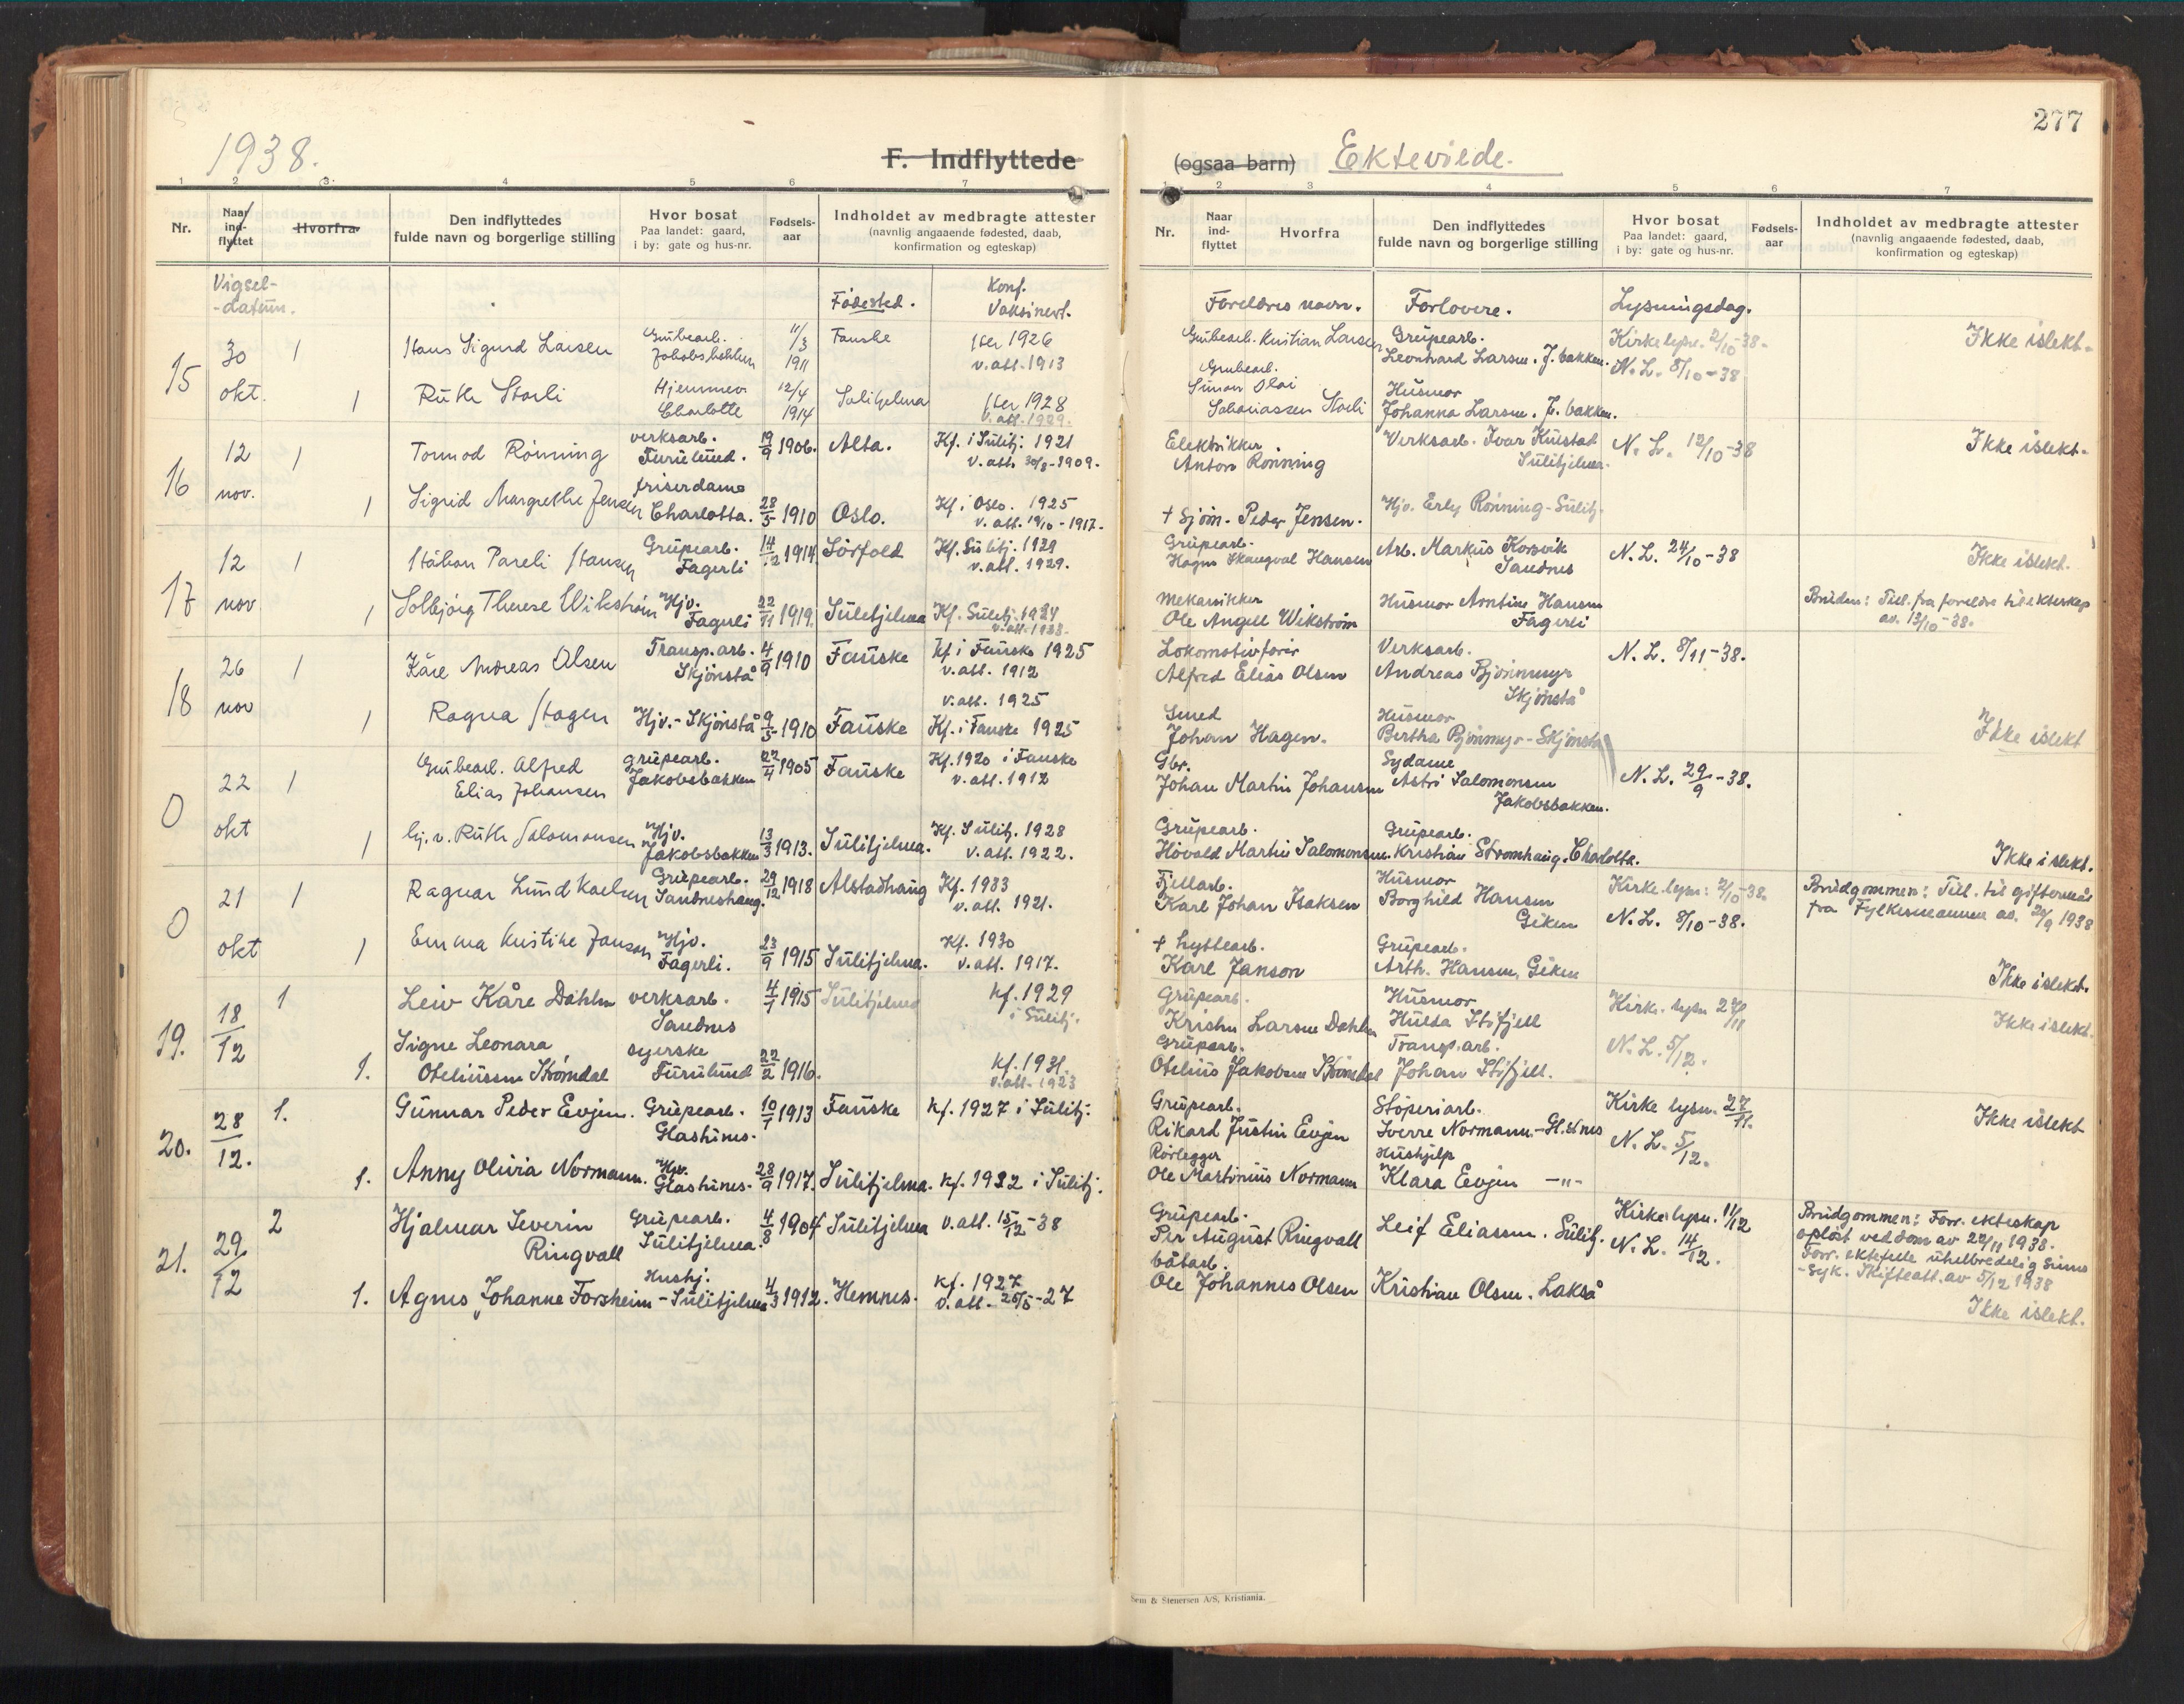 277
1938.
F. Indflyttede
(ogsaa barn) Ektevilde.
1 2 3 4 5 6 7
Nr.
Naar ind-flyttet
Hvorfra
Den indflyttedes
fulde navn og borgerlige stilling
Hvor bosat
Paa landet: gaard,
i by: gate og hus-nr.
Fødsels-aar
Indholdet av medbragte attester
(navnlig angaaende fødested, daab,
konfirmation og egteskap)
Vigsel-
-datum.
Fødested.
Konf.
Vaksinert.
15
30
okt.
1
Hans Sigurd Larsen
Grubearb.
11/3
1911
Fauske
1926
v.att. 1913
1
Ruth Storli
Hjemmev.
Charlotte
12/4
1914
Sulitjelma
1928
v.att. 1929.
16
12
nov.
1
Tormod Rönning
verksarb.
Furulund.
19/9 1906.
Alta.
Kf. i Sulitj. 1921
v. att. 30/8-1909.
1
Sigrid Margrethe Jensen
friserdame
Charlotta.
28/5 1910
Oslo.
Kf. i Oslo. 1925
v. att. 19/10 - 1917.
17
12
nov
1
Håkon Pareli Hansen
Grupearb.
Fagerli
14/12 1914
Sörfold
Kf. Sulitj. 1929
v. att. 1929.
1
Solbjörg Therese Wikström
Hjv.
Fagerli
22/11 1919.
Sulitjelma
Kf. Sulitj. 1934
v. att. 1933.
18
26
nov
1
Kåre Andreas Olsen
Transp. arb.
Skjönstå
4/9 1910
Fauske
Kf i Fauske 1925
v. att. 1912
v. att. 1925
1
Ragna Hagen
Hjv. - Skjönstå
9/5 1910
Fauske
Kf. i Fauske 1925
0
22
okt
1
Grubearb. Alfred
Elias Johansen
grupearb.
Jakobsbakken
22/4 1905
Fauske
Kf. 1920 i Fauske
v. att. 1912
1
hj. v. Ruth Salomonsen
Hjv.
Jakobsbakken
13/3 1913.
Sulitjelma.
Kf. Sulitj. 1928
v. att. 1922.
0
21
okt
1
Ragnar Lund Karlsen
Grupearb.
Sandneshaug.
29/12 1918
Alstadhaug
Kf. 1933
v. att. 1921.
1
Emma Kristine Janson
Hjv.
Fagerli.
23/9 1915
Sulitjelma.
Kf. 1930
v. att. 1917.
19.
18/12
1
Leiv Kåre Dahln
verksarb.
Sandnes
4/1 1915
Sulitjelma
kf. 1929
i Sulitj.
1.
Signe Leonara
Oteliussen Strömdal
syerske
Furulund
22/2 1916.
kf. 1931.
v. att. 1923
20.
28/12.
1.
Gunnar Peder Evjen.
Grupearb.
Glashines.
10/1 1913
Fauske
kf. 1927 i Sulitj.
1.
Anny Olivia Normann.
Hjv.
Glastunes.
28/9 1917.
Sulitjelma.
kf. 1932 i Sulitj.
21.
29/12
2
Hjalmar Severin
Ringvall
Grupearb.
Sulitjelma.
4/8 1904
Sulitjelma
v. att. 15/12-38
1.
Agnes Johanne Forsheim
Hushj.
- Sulitjelma
4/3 1912.
Hemnes.
kf. 1927
v. att. - 25/5-27
1 2 3 4 5 6 7
Nr.
Naar ind-flyttet
Hvorfra
Den indflyttedes
fulde navn og borgerlige stilling
Hvor bosat
Paa landet: gaard,
i by: gate og hus-nr.
Fødsels-aar
Indholdet av medbragte attester
(navnlig angaaende fødested, daab,
konfirmation og egteskap)
Foreldres navn.
Forlovere.
Lysningsdag.
Grubearb. Kristian Larsen
Grupearb.
Leonhard Larsen. J. bakken.
Kirkelysn. 2/10-38.
N. L. 8/10-38
Ikke i slekt.
Grubearb.
Simon Olai
Husmor
Johanna Larsen. J. bakken.
Elektrikker
Anton Rönning
Verksarb. Ivar Knestat
Sulitjelma.
N. L. 12/10-38
Ikke islekt.
† Sjöm. Peder Jensen.
Hjv. Erly Rönning - Sulitj.
Grupearb.
Hagen Skaugval Hansen
Arb. Markus Korsvik
Sandnes
N. L. 24/10-38
Ikke i slekt.
Mekanikker
Ole Angell Wikström
Husmor Arntine Hansen
Fagerli
Bruden: Till. fra foreldre til ekteskap
av. 13/10-38.
Lokomotivförer
Alfred Elias Olsen
Verksarb.
Andreas Bjönnmyr
Skjönstå
N. L. 8/11-38.
Smed
Johan Hagen.
Husmor
Bertha Bjönnmyr - Skjönstå
Ikke islekt
Gbr.
Johan Martin Johansen
Sydame
Astri Salomonsen
Jakobsbakken.
N. L. 29/9-38.
Grupearb.
Hövald Martin Salomonsen.
Grupearb.
Kristian Strömhaug. Charlotta.
Ikke i slekt.
Fjellarb.
Karl Johan Isaksen
Husmor
Borghild Hansen
Giken
Kirke-lysn: 2/10-38.
N. L. 8/10-38.
Brudgommen: Till. til giftermål
fra Fylkesmannen av. 29/9 1938
† Hyttearb.
Karl Janson
Grupearb.
Arth. Hansen, Giken
Ikke islekt.
Grupearb.
Kristen Larsen Dahln
Husmor
Hulda Stifjell
Kirk. lysn 27/11
Ikke i slekt.
Gruparb.
Otelius Jakobsen Strömdal
Transp. arb.
Johan Stifjell.
N. L. 5/12.
Grupearb.
Rikard Justin Evjen
Stöperiarb.
Sverre Normann. - Gl. st nes
Kirke lysn. 27/11.
N. L. 5/12.
Ikke i slekt
Rörlegger
Ole Martinius Normann
Hushjelp
Klara Evjen -"-
Grupearb.
Per August Ringvall
Leif Eliassen. Sulitj.
Kirkelysn. 11/12
N. L. 14/12.
Brudgommen: Forr. ekteskap
oplöst ved dom av 22/11 1938.
Forr. ektefelle uhelbredelig sinns
-syk. Skifteatt. av 5/12 1938
båtarb.
Ole Johannes Olsen
Kristian Olsen. Lakså
Ikke islekt.
Sem & Stenersen A/S, Kristiania.